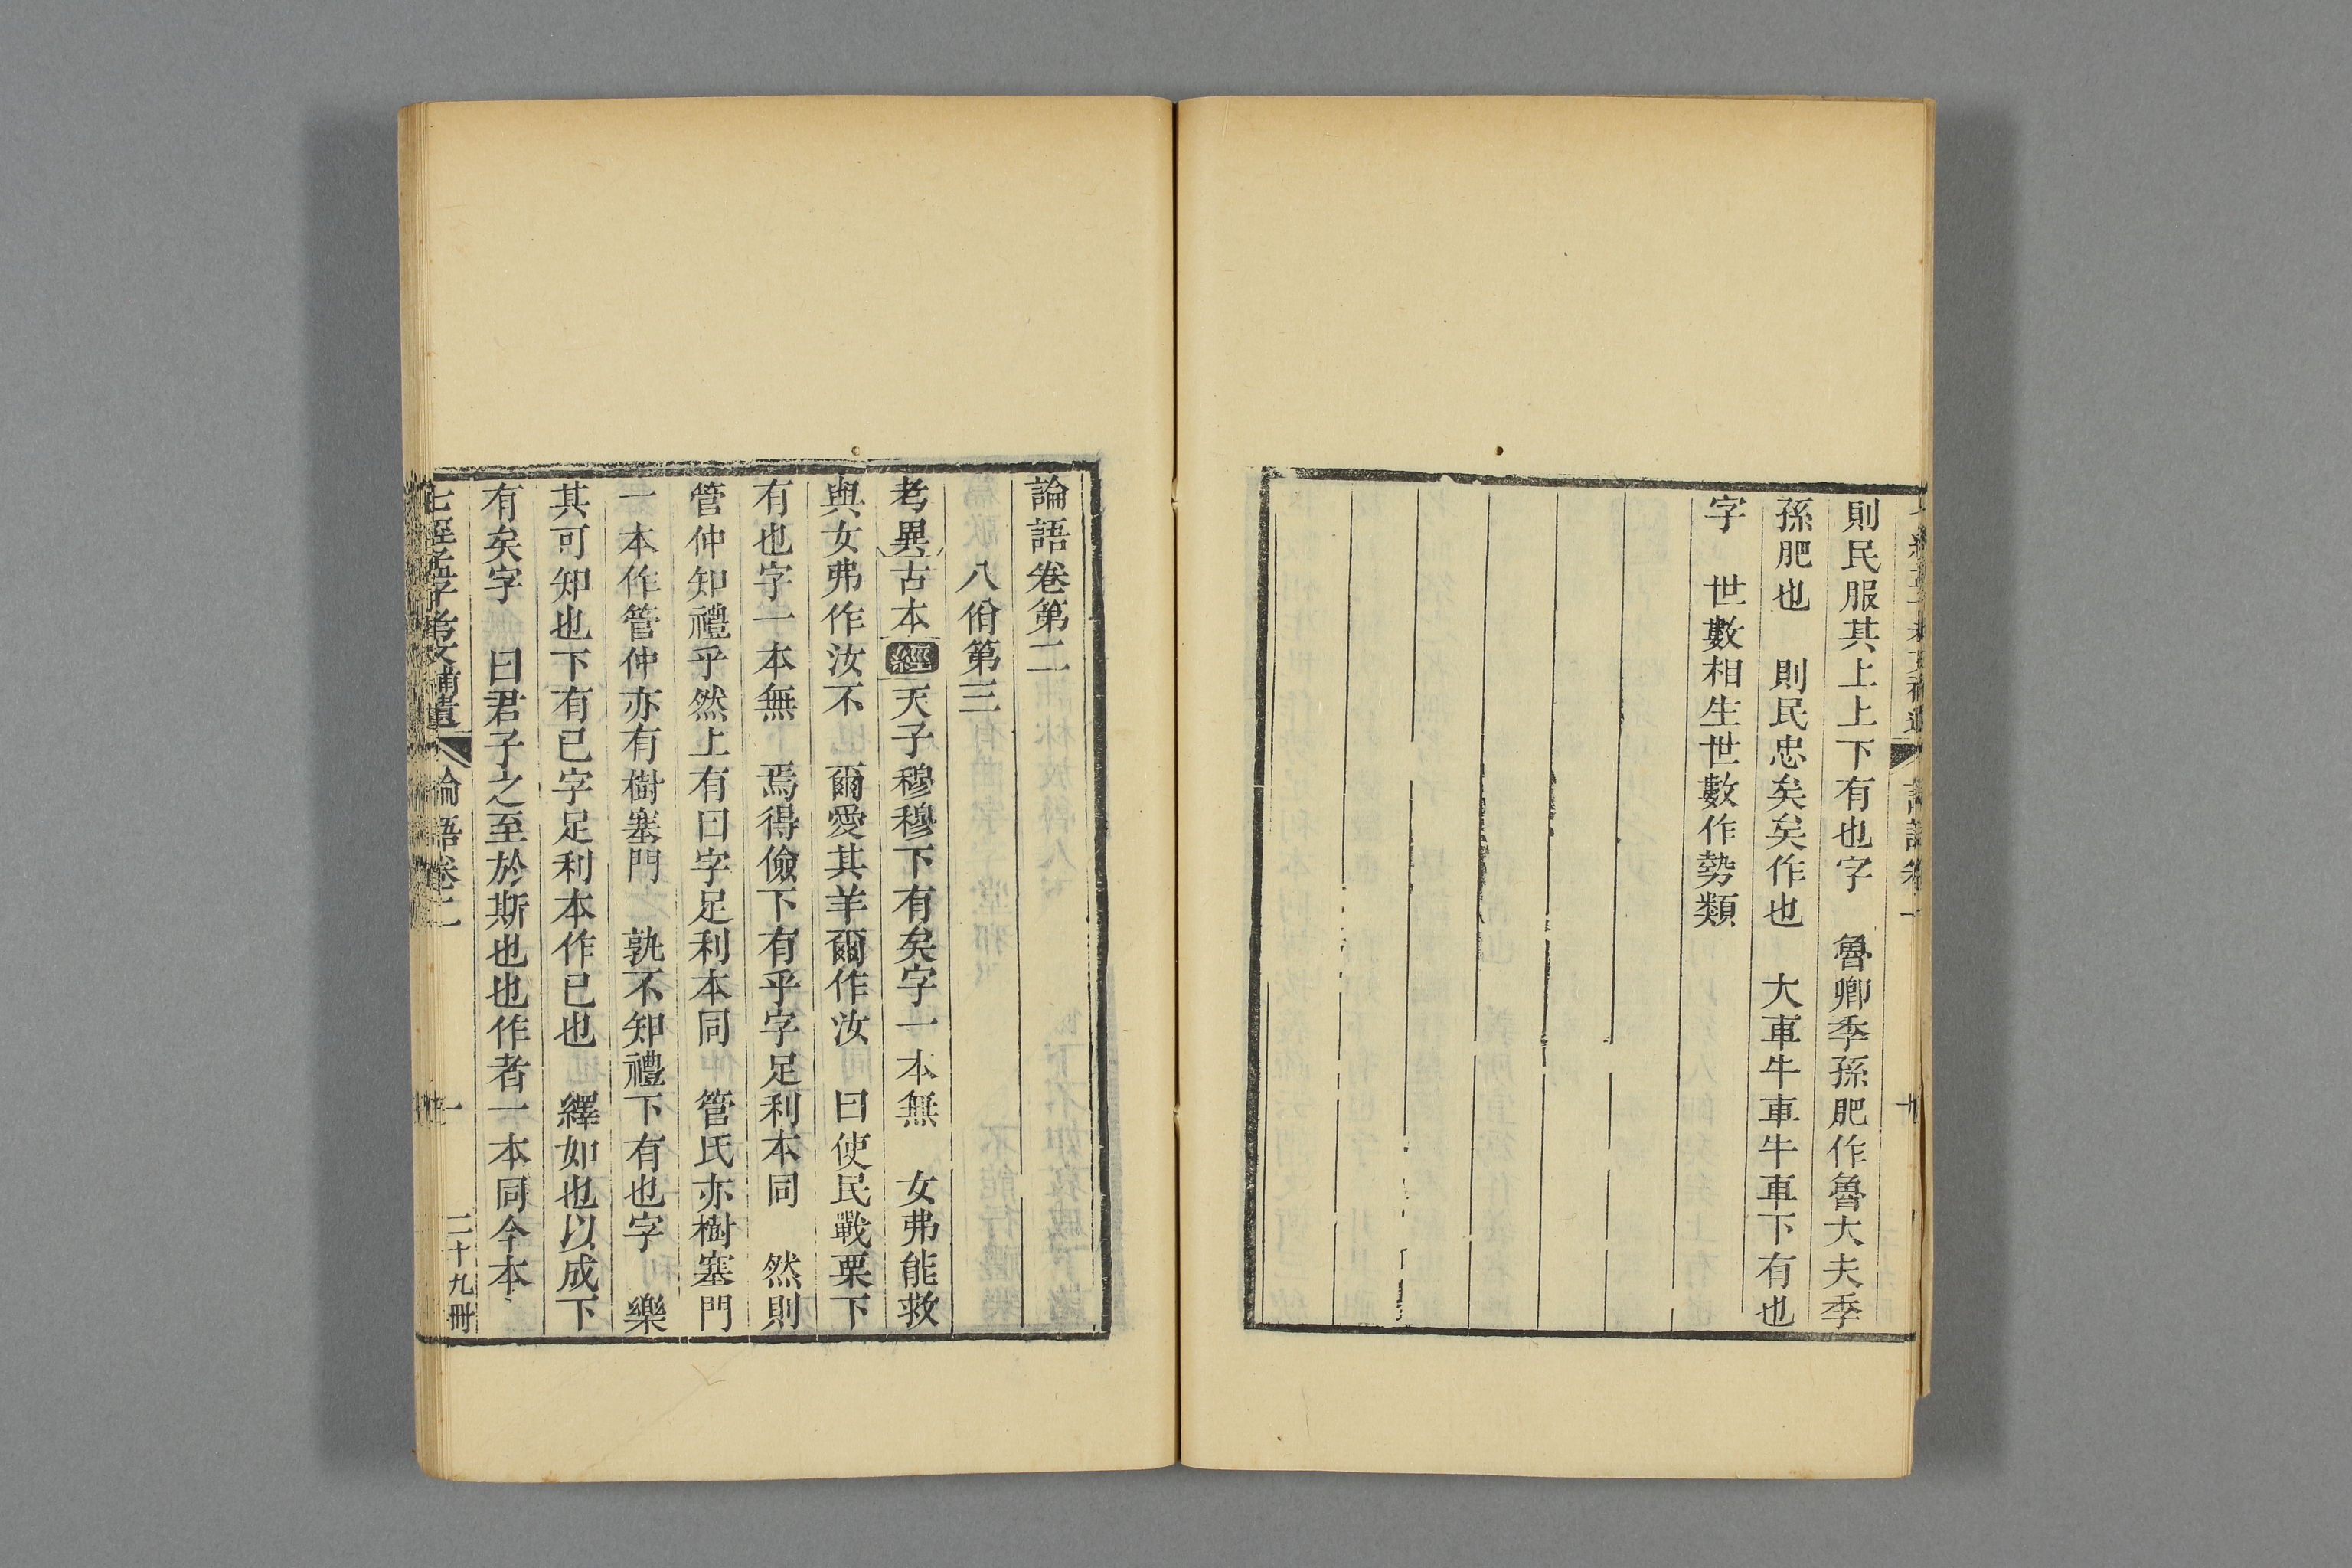 則民服其上上下有也字　魯卿季孫肥作魯大夫季
孫肥也　則民忠矣矣作也　大車牛車牛車下有也
字　世數相生世數作勢類
論語卷第二
八佾第三
考異古本經天子穆穆下有矣字一本無　女弗能救
與女弗作汝不　爾愛其羊爾作汝　曰使民戰栗下
有也字一本無　焉得儉下有乎字足利本同　然則
管仲知禮乎然上有曰字足利本同　管氏亦樹塞門
一本作管仲亦有樹塞門　孰不知禮下有也字　樂
其可知也下有已字足利本作已也　繹如也以成下
有矣字　曰君子之至於斯也也作者一本同今本
七經孟子考文補遺　論語卷二　一　二十九冊